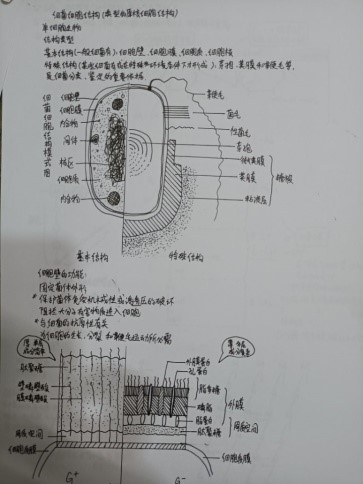 细菌细胞结构(典型的原核细胞结构)
单细胞生物
结构类型
基本结构(一般细菌有):细胞壁、细胞膜、细胞质、细胞核
特殊结构(某些细菌有或在特殊环境条件下才形成):芽孢、荚膜和鞭毛等,
是细菌分类、鉴定的重要依据
细菌细胞结构模式图
细胞壁
细胞膜
内含物
间体
核区
细胞质
内含物
鞭毛
菌毛
性菌毛
芽孢
微荚膜
荚膜
粘液层
糖被
基本结构
特殊结构
细胞壁的功能:
固定菌体外形
*保护菌体免受机械性或渗透压的破坏
阻拦大分子有害物质进入细胞
*与细菌的抗原性有关
为细胞的生长、分裂和鞭毛运动所必需
厚
成分简单
薄
成分复杂
肽聚糖
壁磷壁酸
膜磷壁酸
周质空间
细胞质膜
G+
外膜蛋白
孔蛋白
脂多糖
磷脂
脂蛋白
外膜
周质空间
肽聚糖
细胞质膜
G-